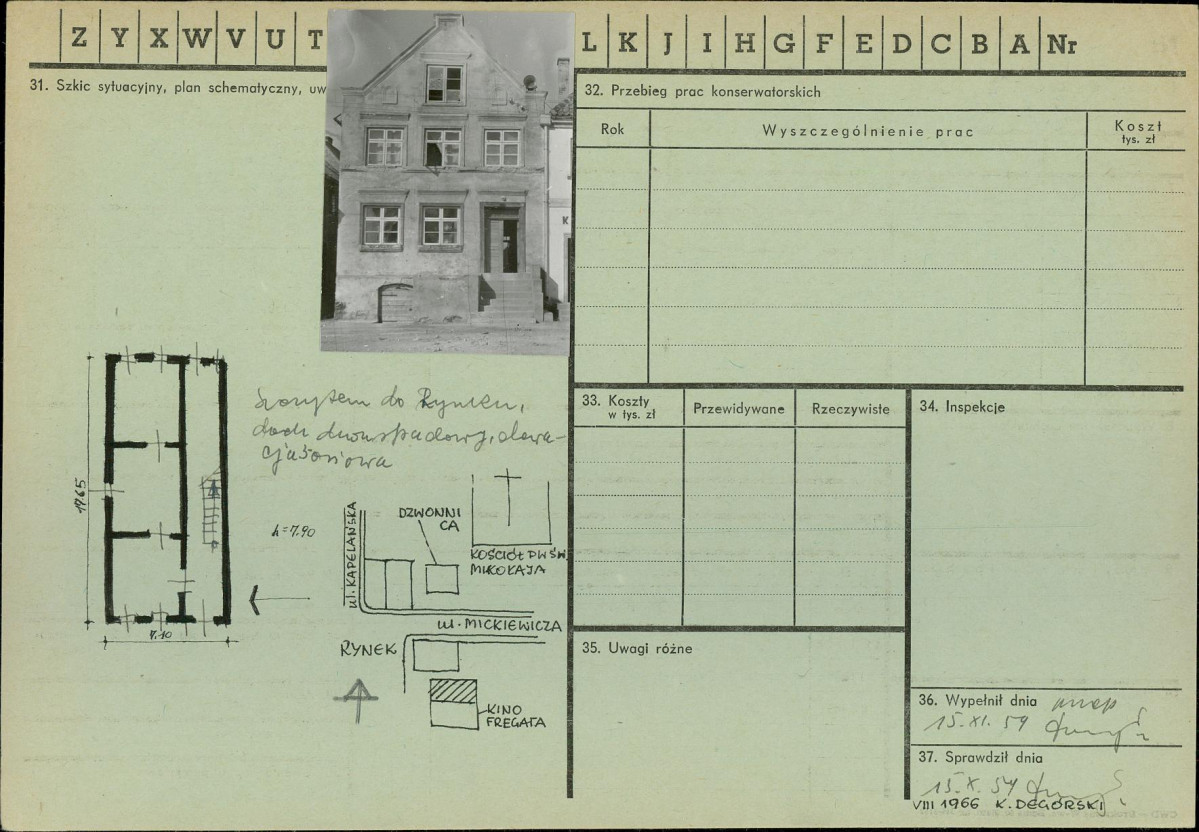 Z Y X W V U T L K J I H G F E D C B A Nr
31. Szkic sytuacyjny, plan schematyczny, uw
32. Przebieg prac konserwatorskich
Rok Wyszczególnienie prac Koszt
tys. zł
K
Szczytem do Rynku,
dach dwuspadowy, elewa-
cja 3 osiowa
17.65
h=7.90
7.10
ul. KAPELAŃSKA
DZWONNI
CA
KOŚCIÓŁ PW ŚW.
MIKOŁAJA
ul. MICKIEWICZA
RYNEK
KINO
FREGATA
33. Koszty
w tys. zł
Przewidywane
Rzeczywiste
34. Inspekcje
35. Uwagi różne
36. Wypełnił dnia
15. XI. 59
37. Sprawdził dnia
15. X. 59
VIII 1966 K. DEGÓRSKI